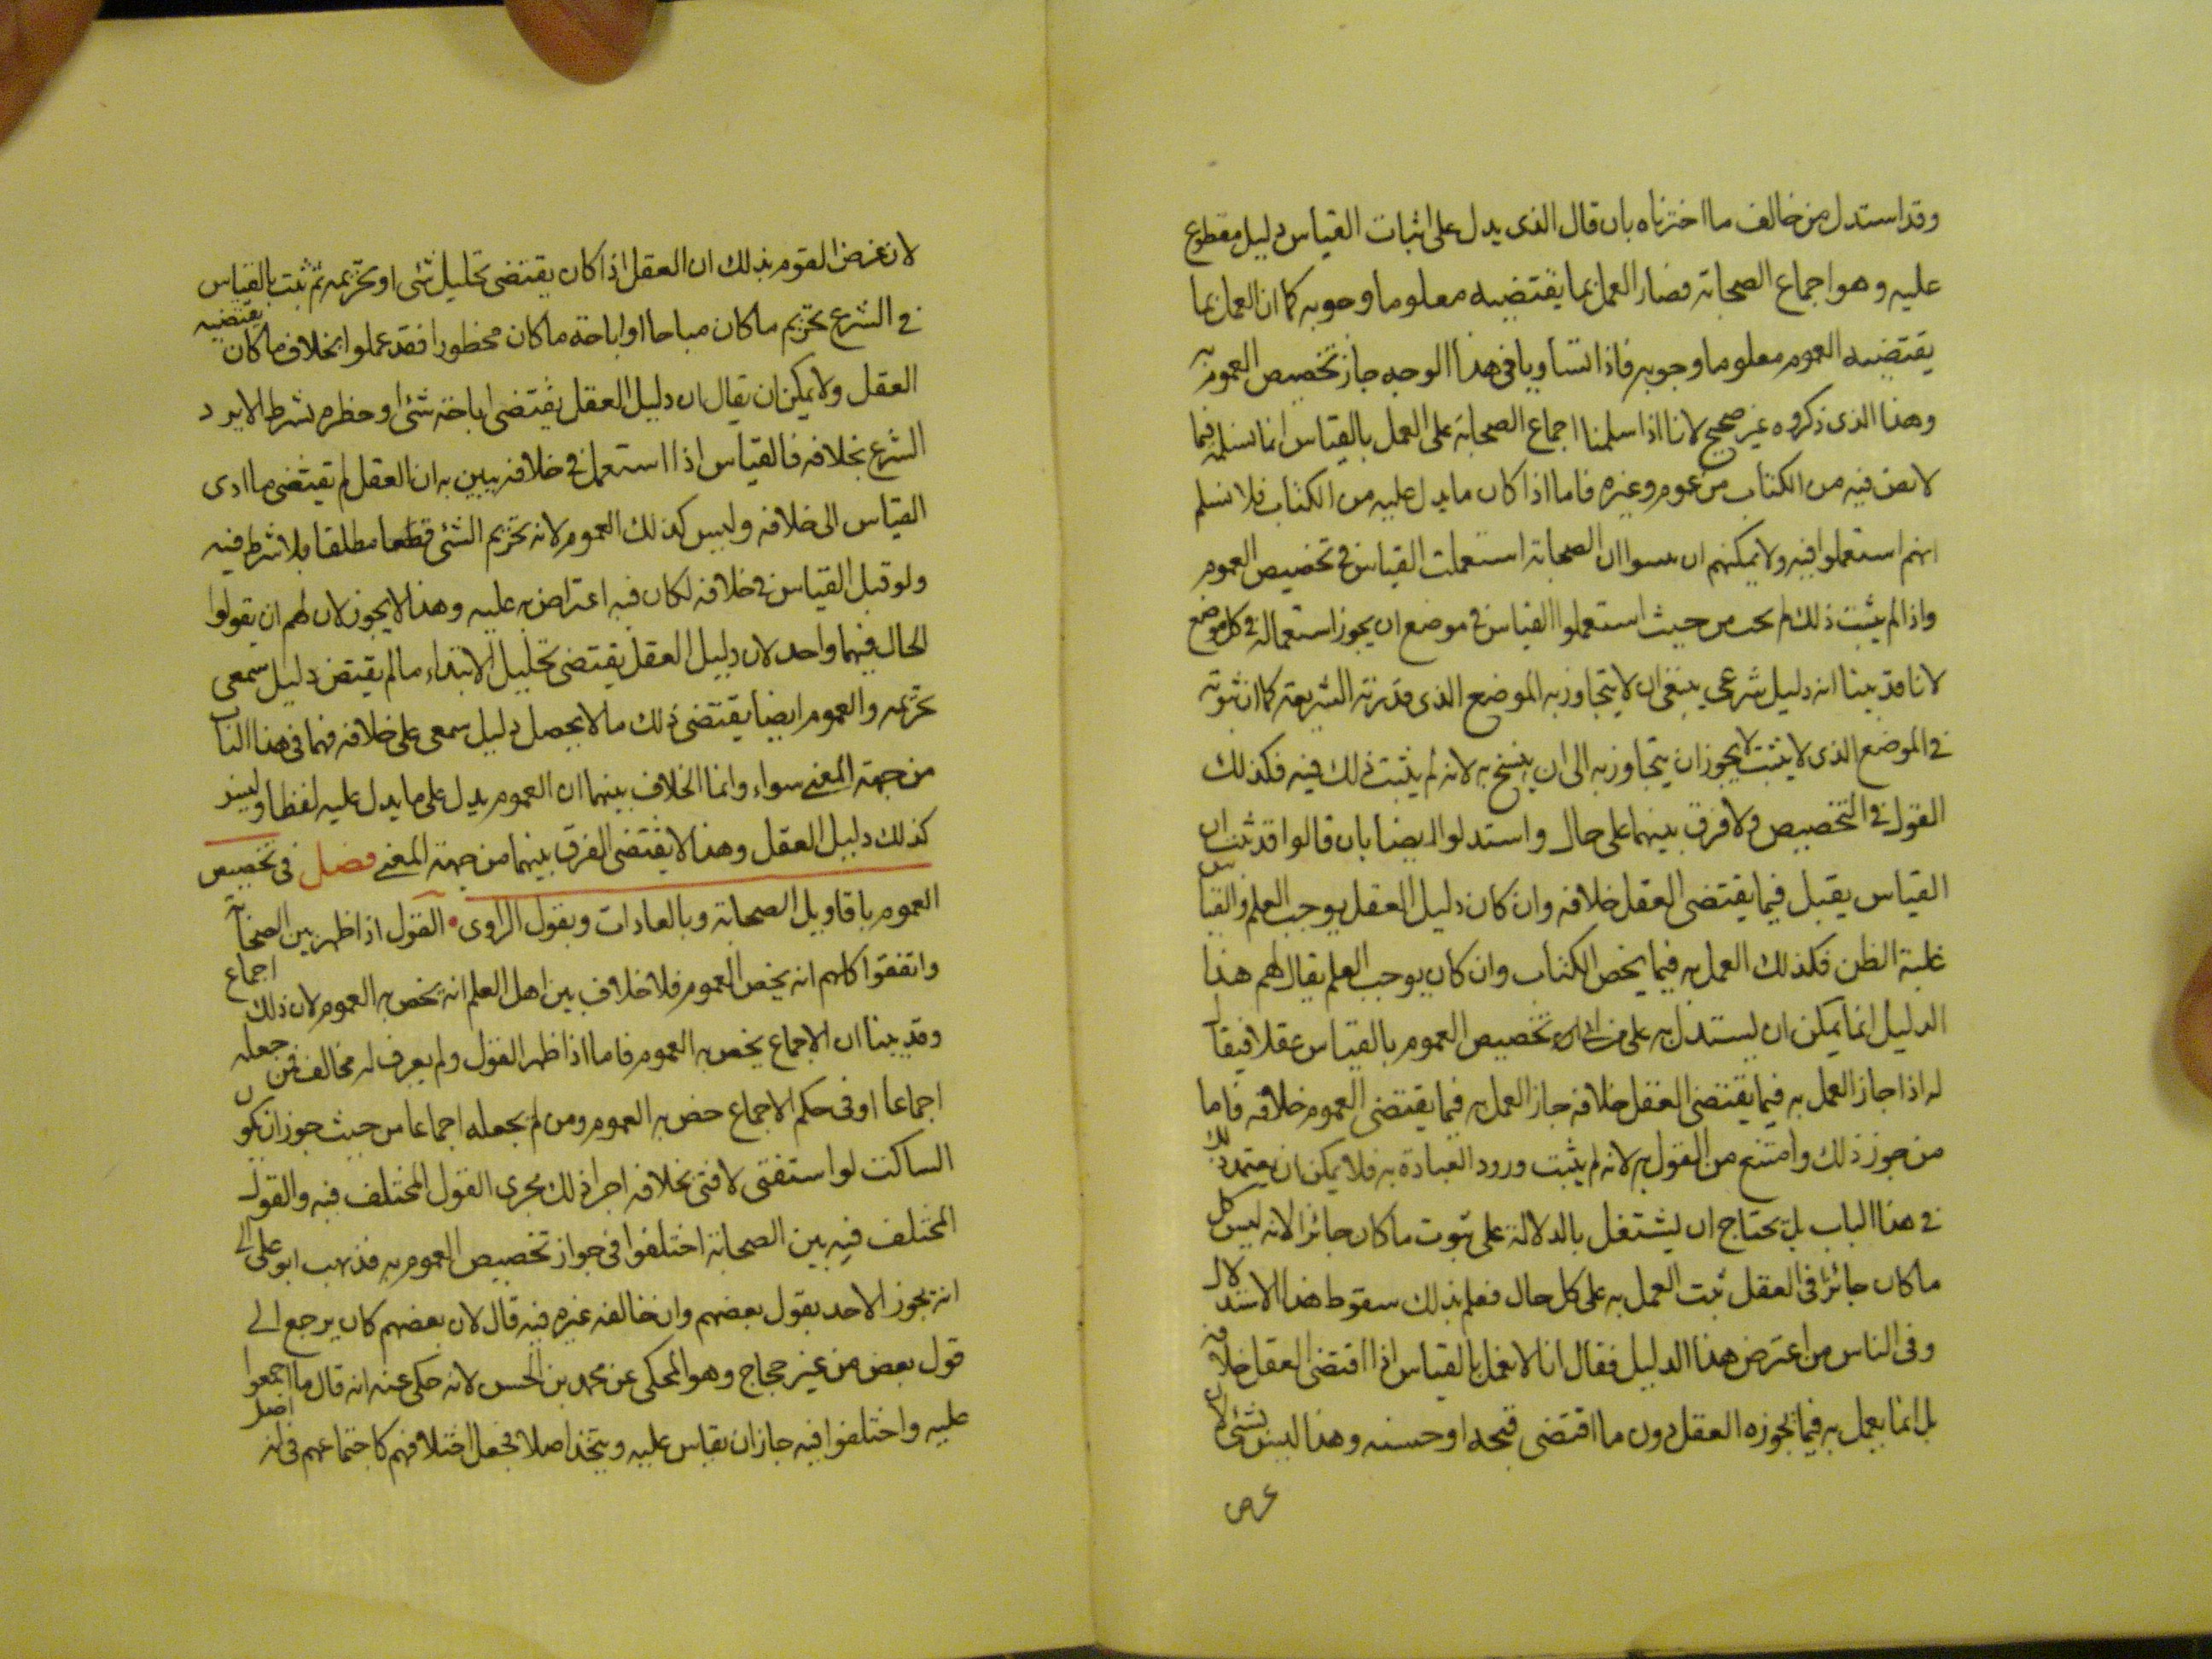 وقد استدل من خالف ما اخترناه بان قال الذى يدل على اثبات القياس دليل مقطوع
عليه وهو اجماع الصحابة فصار العمل بما يقتضيه معلوما وجوبه كما ان العمل بما
يقتضيه العموم معلوما وجوبه فاذا تساويا فى هذا الوجه جاز تخصيص العموم به
وهذا الذى ذكروه غير صحيح لانا اذا سلمنا اجماع الصحابة على العمل بالقياس انما نسلمه فيما
لا نص فيه من الكتاب من عموم وغيره فاما اذا كان ما يدل عليه من الكتاب فلا نسلم
انهم استعملوا فيه ولا يمكنهم ان يبينوا ان الصحابة استعملت القياس فى تخصيص العموم
واذا لم يثبت ذلك لم يجب من حيث استعملوا القياس فى موضع ان يجوز استعماله فى كل موضع
لانا قد بينا انه دليل شرعى ينبغى ان لا يتجاوز به الموضع الذى قررته الشريعة كما ان ثبوته
فى الموضع الذى لا يثبت لا يجوز ان يتجاوز به الى ان ينسخ به لانه لم يثبت ذلك فيه فكذلك
القول فى التخصيص ولا فرق بينهما على حال واستدلوا ايضا بان قالوا قد ثبت ان
القياس يقبل فيما يقتضى العقل خلافه وان كان دليل العقل يوجب العلم والقياس
غلبة الظن فكذلك العمل به فيما يخص الكتاب وان كان يوجب العلم يقال لهم هذا
الدليل انما يمكن ان يستدل به على من تخصيص العموم بالقياس عقلا فيقال
له اذا جاز العمل به فيما يقتضى العقل خلافه جاز العمل به فيما يقتضى العموم خلافه فاما
من جوز ذلك وامتنع من القول به لانه لم يثبت ورود العبادة به فلا يمكن ان يعتمد ذلك
فى هذا الباب بل يحتاج ان يشتغل بالدلالة على ثبوت ما كان جائزا لانه ليس كل
ما كان جائزا فى العقل ثبت العمل به على كل حال فعلم بذلك سقوط هذا الاستدلال
وفى الناس من اعترض هذا الدليل فقال انا لا نعمل بالقياس اذا اقتضى العقل خلافه
بل انما يعمل به فيما يجوزه العقل دون ما اقتضى قبحه او حسنه وهذا ليس بشئ لان
لان غرض القوم بذلك ان العقل اذا كان يقتضى تحليل شئ او تحريمه ثم ثبت بالقياس
فى الشرع تحريم ما كان مباحا او اباحة ما كان محظورا فقد عملوا بخلاف ما كان يقتضيه
العقل ولا يمكن ان يقال ان دليل العقل يقتضى اباحة شئ او حظره بشرط الا يرد
الشرع بخلافه فالقياس اذا استعمل فى خلافه يبين به ان العقل لم يقتض ما ادى
القياس الى خلافه وليس كذلك العموم لانه تحريم الشئ قطعا مطلقا بلا شرط فيه
ولو قبل القياس فى خلافه لكان فيه اعتراض به عليه وهذا لا يجوز لان لهم ان يقولوا
الحال فيهما واحد لان دليل العقل يقتضى تحليل الانبذاء ما لم يقتض دليل سمعى
تحريمه والعموم ايضا يقتضى ذلك ما لا يحصل دليل سمعى على خلافه فهما فى هذا الباب
من جهة المعنى سواء وانما الخلاف بينهما ان العموم يدل على ما يدل عليه لفظا وليس
كذلك دليل العقل وهذا لا يقتضى الفرق بينهما من جهة المعنى فصل فى تخصيص
العموم باقاويل الصحابة وبالعادات وبقول الراوى القول اذا ظهر بين الصحابة
واتفقوا كلهم انه يخص العموم فلا خلاف بين اهل العلم انه يخص به العموم لان ذلك اجماع
وقد بينا ان الاجماع يخص به العموم فاما اذا ظهر القول ولم يعرف له مخالف فمن جعله
اجماعا او فى حكم الاجماع خص به العموم ومن لم يجعله اجماعا من حيث جوز ان يكون
الساكت لو استفتى لافتى بخلافه اجرى ذلك مجرى القول المختلف فيه والقول
المختلف فيه بين الصحابة اختلفوا فى جواز تخصيص العموم به فذهب ابو على الى
انه يجوز الاخذ بقول بعضهم وان خالفه غيره فيه قال لان بعضهم كان يرجع الى
قول بعض من غير حجاج وهو المحكى عن محمد بن الحسن لانه حكى عنه انه قال ما اجمعوا
عليه واختلفوا فيه جاز ان يقاس عليه ويتخذ اصلا فجعل اختلافهم كاجتماعهم فى انه اصل